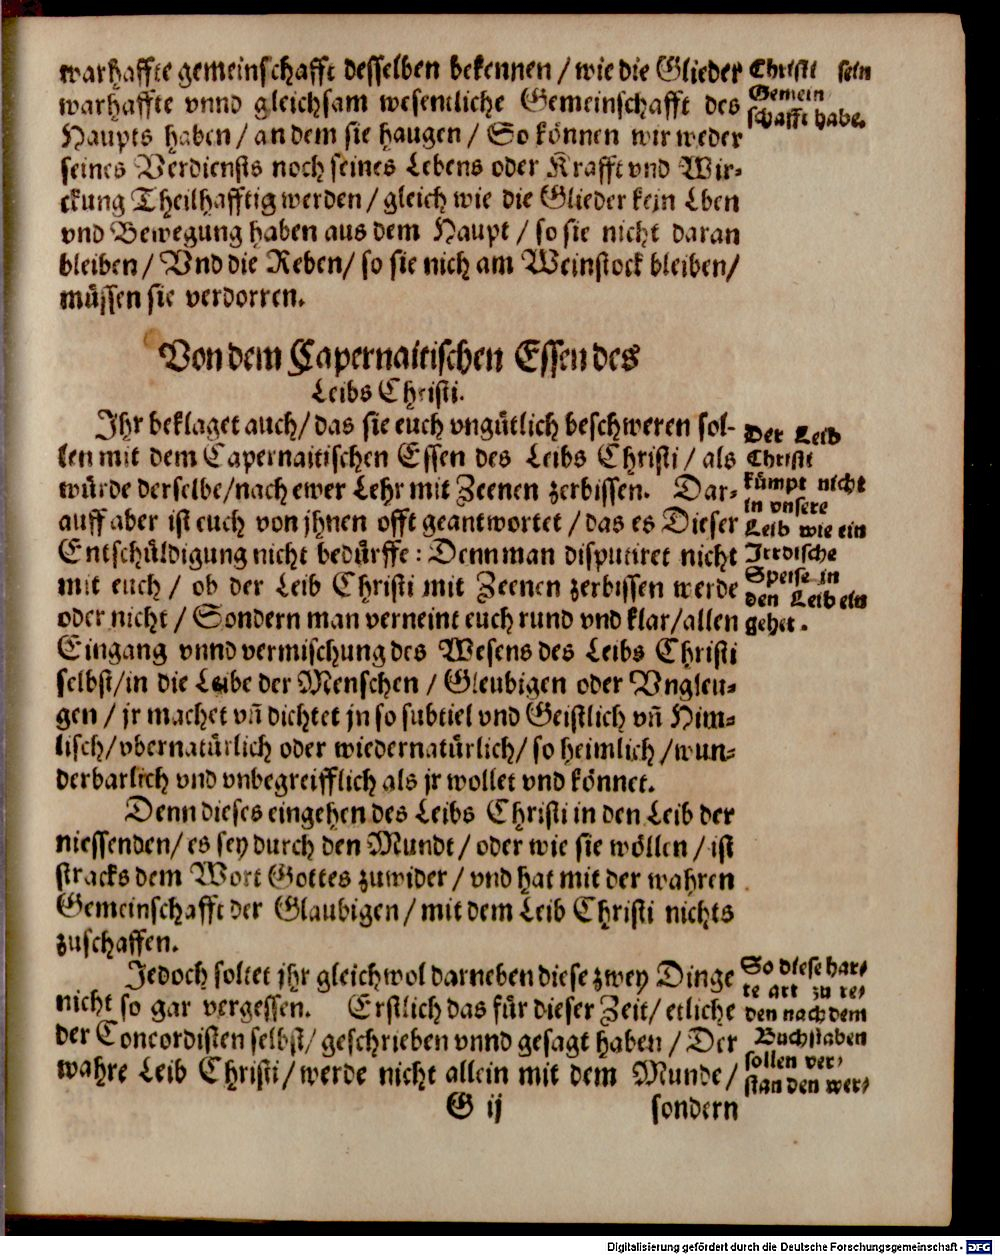 warhaffte gemeinschafft desselben bekennen / wie die Glieder
warhaffte vnnd gleichsam wesentliche Gemeinschafft des
Haupts haben / an dem sie haugen / So können wir weder
seines Verdiensts noch seines Lebens oder Krafft vnd Wir-
ckung Theilhafftig werden / gleich wie die Glieder kein Lben
vnd Bewegung haben aus dem Haupt / so sie nicht daran
bleiben / Vnd die Reben / so sie nich am Weinstock bleiben /
müssen sie verdorren.
Christi sein
Gemein
schafft habe.
Von dem Capernaitischen Essen des
Leibs Christi.
Ihr beklaget auch / das sie euch vngütlich beschweren sol-
len mit dem Capernaitischen Essen des Leibs Christi / als
würde derselbe / nach ewer Lehr mit Zeenen zerbissen. Dar-
auff aber ist euch von jhnen offt geantwortet / das es Dieser
Entschüldigung nicht bedürffe : Denn man disputiret nicht
mit euch / ob der Leib Christi mit Zeenen zerbissen werde
oder nicht / Sondern man verneint euch rund vnd klar / allen
Eingang vnnd vermischung des Wesens des Leibs Christi
selbst / in die Leibe der Menschen / Gleubigen oder Vngleu-
gen / jr machet vñ dichtet jn so subtiel vnd Geistlich vñ Him-
lisch / vbernatürlich oder wiedernatürlich / so heimlich / wun-
derbarlich vnd vnbegreifflich als jr wollet vnd könnet.
Der Leib
Christi
kümpt nicht
in vnsere
Leib wie ein
Irrdische
Speise in
den Leib ein
gehet.
Denn dieses eingehen des Leibs Christi in den Leib der
niessenden / es sey durch den Mundt / oder wie sie wöllen / ist
stracks dem Wort Gottes zuwider / vnd hat mit der wahren
Gemeinschafft der Glaubigen / mit dem Leib Christi nichts
zuschaffen.
Jedoch soltet jhr gleichwol darneben diese zwey Dinge
nicht so gar vergessen. Erstlich das für dieser Zeit / etliche
der Concordisten selbst / geschrieben vnnd gesagt haben / Der
wahre Leib Christi / werde nicht allein mit dem Munde /
So diese har-
te art zu re-
den nach dem
Buchstaben
sollen ver-
standen wer-
G ij sondern
Digitalisierung gefördert durch die Deutsche Forschungsgemeinschaft - DFG